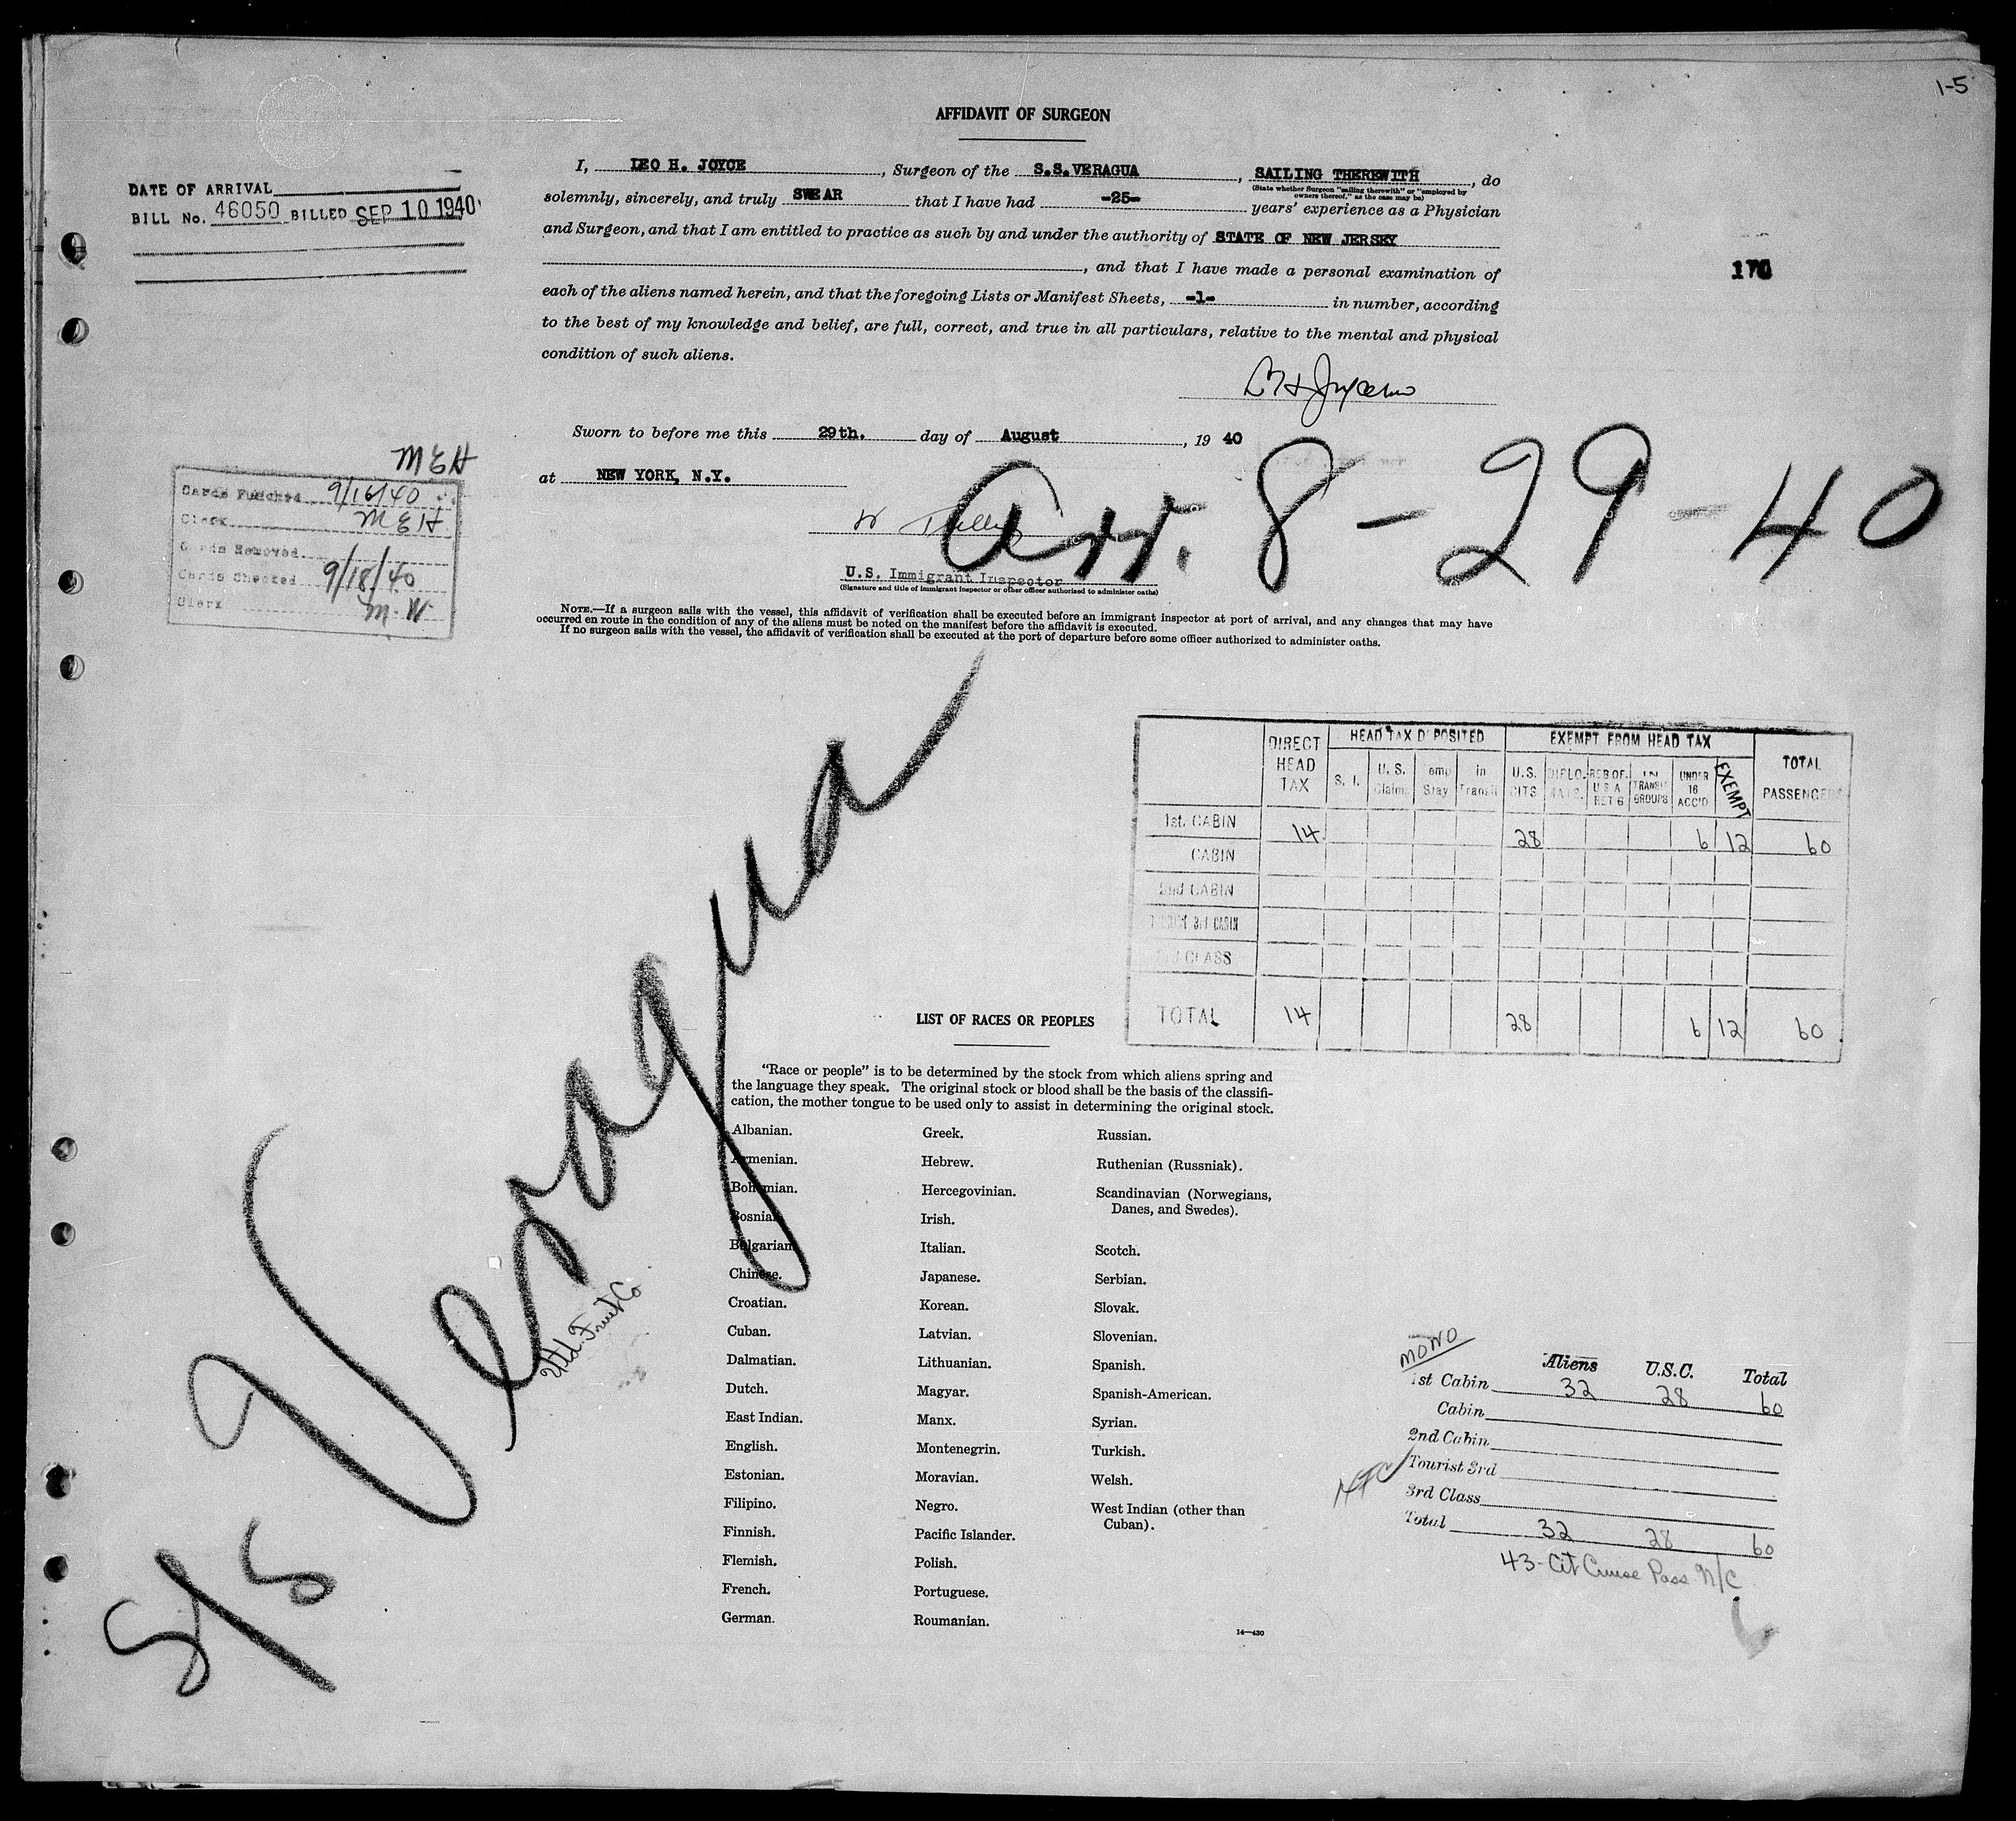 1-5
AFFIDAVIT OF SURGEON
I, LEO H. JOYCE, Surgeon of the S.S. VERAGUA, SAILING THEREWITH, do
(State whether Surgeon "sailing therewith" or "employed by
owners thereof," as the case may be)
solemnly, sincerely, and truly SWEAR that I have had -25- years' experience as a Physician
and Surgeon, and that I am entitled to practice as such by and under the authority of STATE OF NEW JERSEY
, and that I have made a personal examination of
each of the aliens named herein, and that the foregoing Lists or Manifest Sheets, -1- in number, according
to the best of my knowledge and belief, are full, correct, and true in all particulars, relative to the mental and physical
condition of such aliens.
DATE OF ARRIVAL
BILL No. 46050 BILLED SEP 10 1940
Sworn to before me this 29th. day of August, 19 40
at NEW YORK, N.Y.
Arr. 8-29-40
U.S. Immigrant Inspector
(Signature and title of immigrant inspector or other officer authorized to administer oaths)
MEH
Cards Punched 9/16/40
Clerk MEH
Cards Removed
Cards Checked 9/18/40
Clerk M.W.
NOTE.—If a surgeon sails with the vessel, this affidavit of verification shall be executed before an immigrant inspector at port of arrival, and any changes that may have
occurred en route in the condition of any of the aliens must be noted on the manifest before the affidavit is executed.
If no surgeon sails with the vessel, the affidavit of verification shall be executed at the port of departure before some officer authorized to administer oaths.
S/S Veragua
Utd. Fruit Co
DIRECT HEAD TAX
HEAD TAX DEPOSITED
EXEMPT FROM HEAD TAX
TOTAL PASSENGERS
S. I.
U. S. Claim.
Temp Stay
in Transit
U.S. CITS
DIPLO-MATS.
RES OF. U S A RET'G
IN TRANSIT GROUPS
UNDER 16 ACC'D
EXEMPT
1st. CABIN 14 28 6 12 60
CABIN
2nd CABIN
TOURIST 3rd CABIN
3rd CLASS
TOTAL 14 28 6 12 60
LIST OF RACES OR PEOPLES
"Race or people" is to be determined by the stock from which aliens spring and
the language they speak. The original stock or blood shall be the basis of the classifi-
cation, the mother tongue to be used only to assist in determining the original stock.
Albanian.
Armenian.
Bohemian.
Bosnian.
Bulgarian.
Chinese.
Croatian.
Cuban.
Dalmatian.
Dutch.
East Indian.
English.
Estonian.
Filipino.
Finnish.
Flemish.
French.
German.
Greek.
Hebrew.
Hercegovinian.
Irish.
Italian.
Japanese.
Korean.
Latvian.
Lithuanian.
Magyar.
Manx.
Montenegrin.
Moravian.
Negro.
Pacific Islander.
Polish.
Portuguese.
Roumanian.
Russian.
Ruthenian (Russniak).
Scandinavian (Norwegians,
Danes, and Swedes).
Scotch.
Serbian.
Slovak.
Slovenian.
Spanish.
Spanish-American.
Syrian.
Turkish.
Welsh.
West Indian (other than
Cuban).
14—430
MONO
Aliens U.S.C. Total
1st Cabin 32 28 60
Cabin
2nd Cabin
Tourist 3rd
3rd Class
Total 32 28 60
43-Cit Cruise Pass N/C